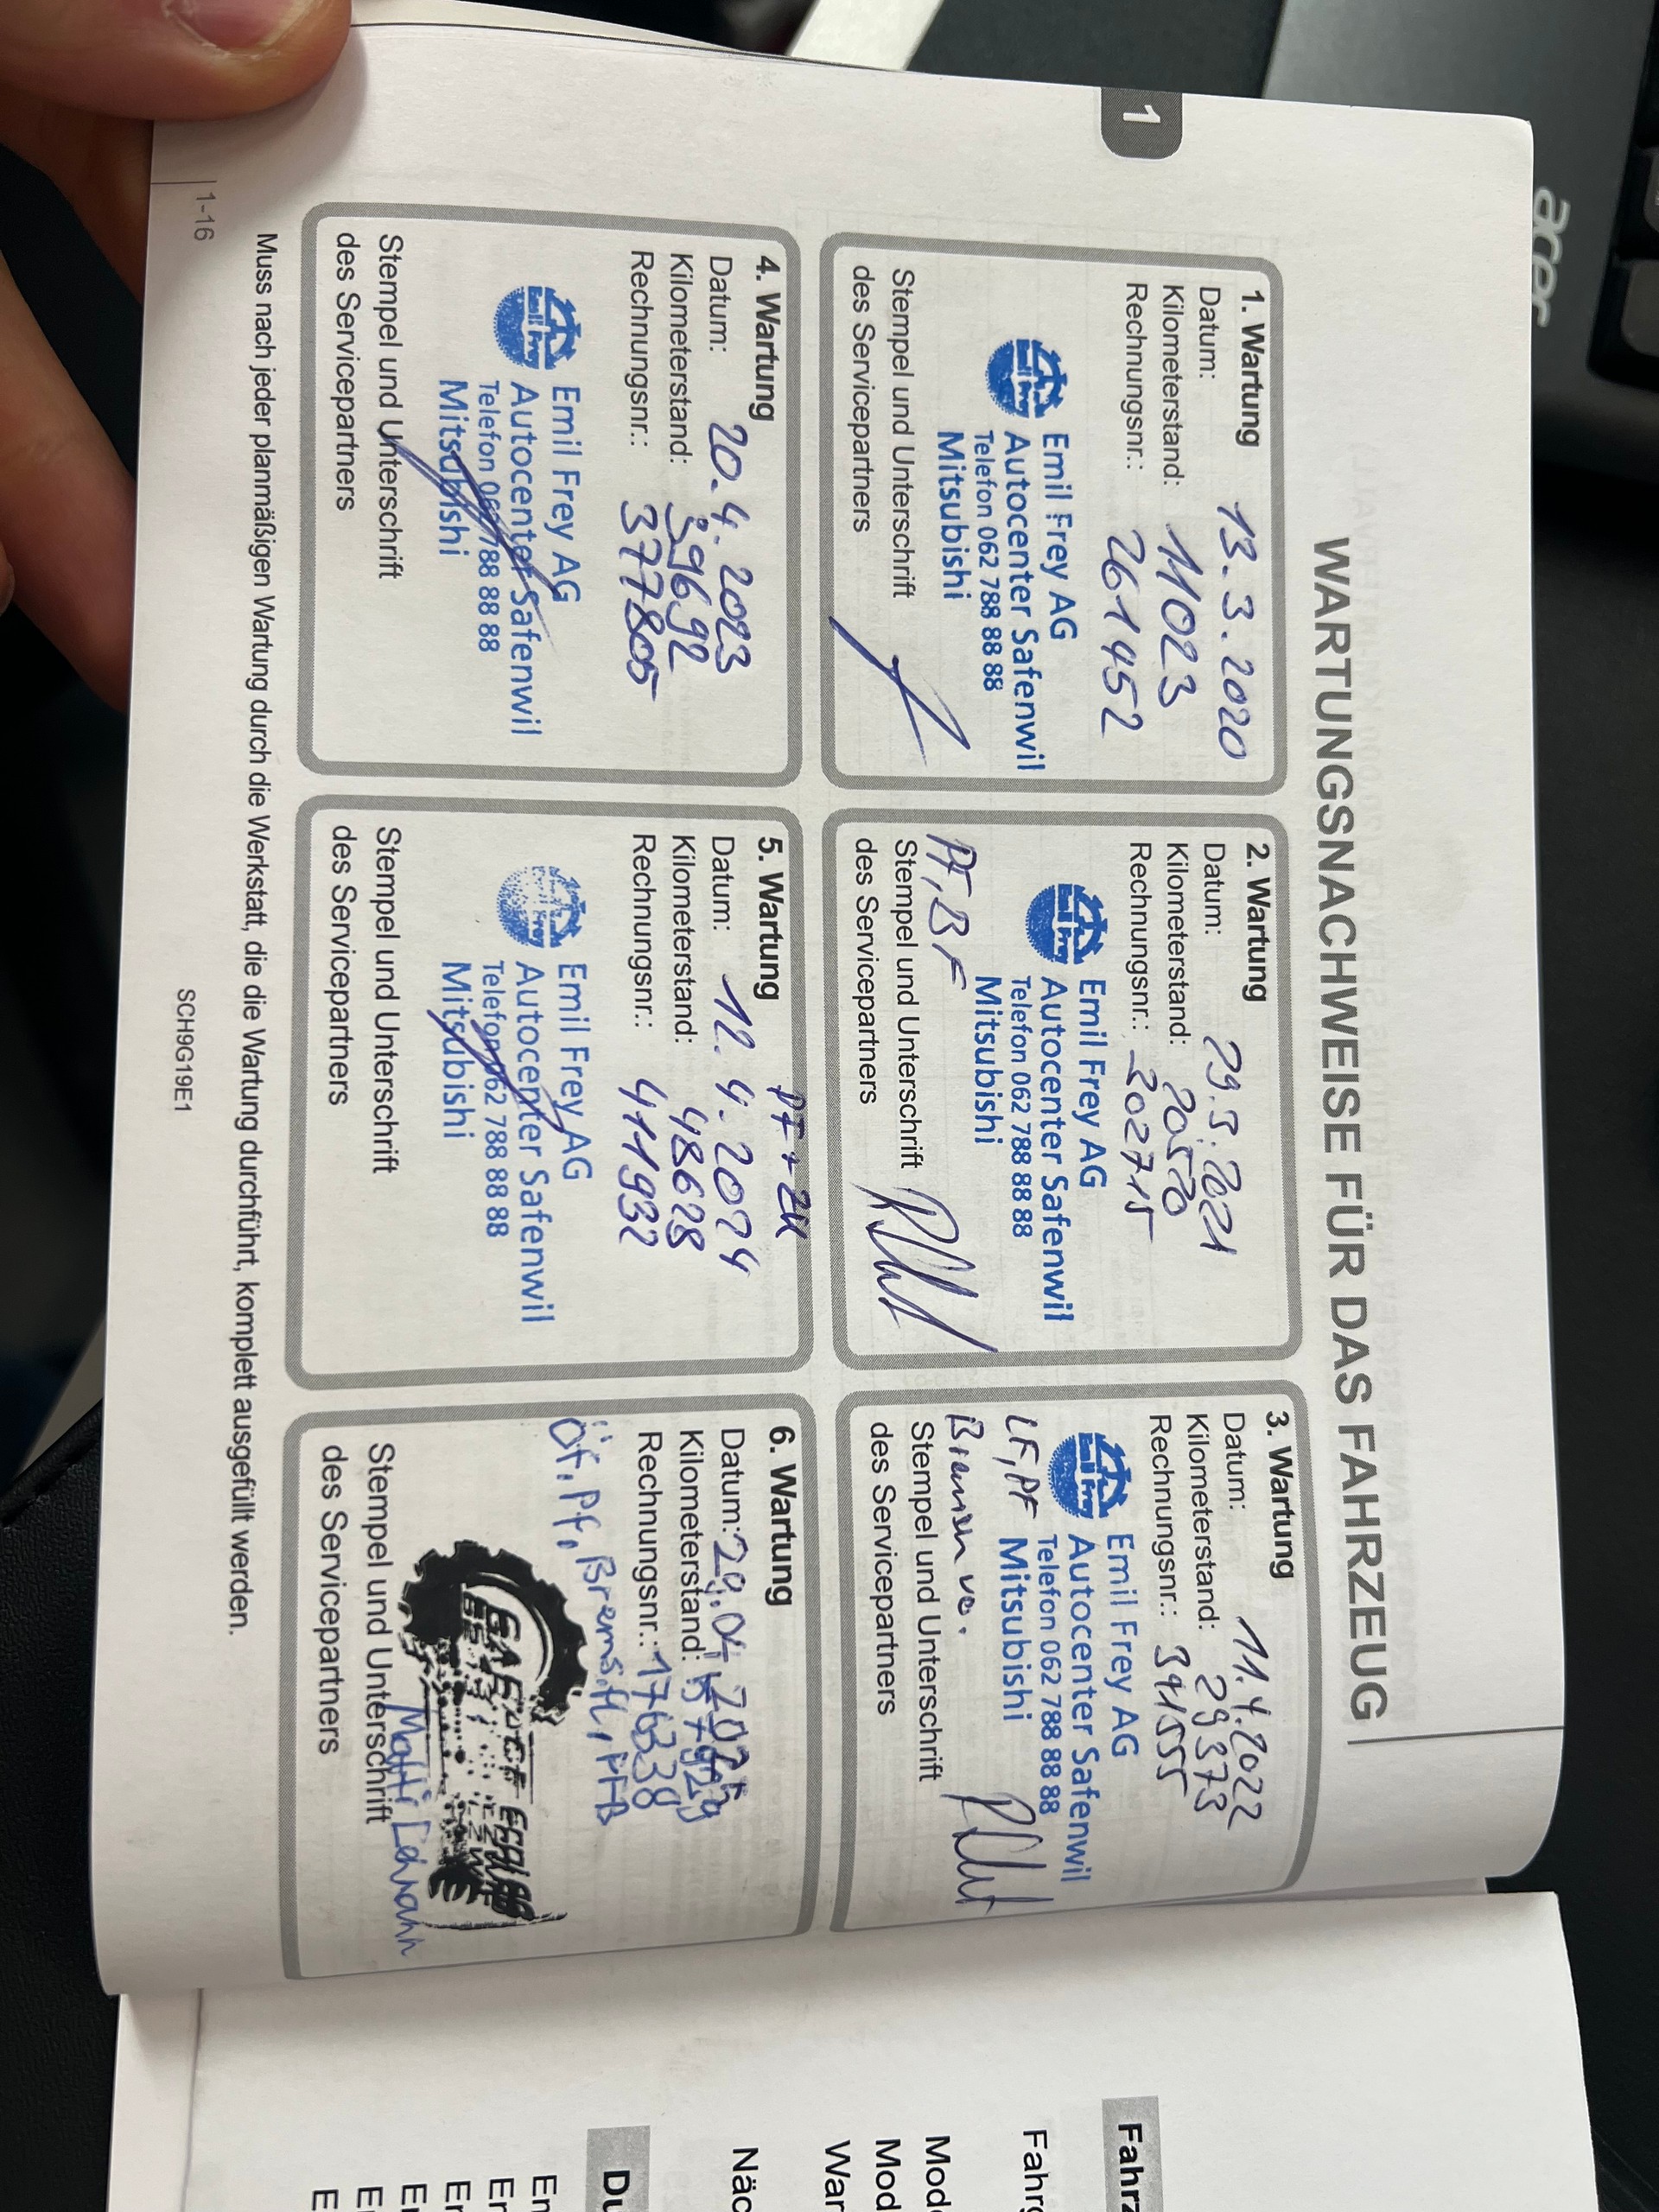 acer
1
WARTUNGSNACHWEISE FÜR DAS FAHRZEUG
1. Wartung
Datum: 13.3.2020
Kilometerstand: 11023
Rechnungsnr.: 261452
Emil Frey AG
Autocenter Safenwil
Telefon 062 788 88 88
Mitsubishi
Stempel und Unterschrift
des Servicepartners
2. Wartung
Datum: 29.3.2021
Kilometerstand: 20550
Rechnungsnr.: 302715
Emil Frey AG
Autocenter Safenwil
Telefon 062 788 88 88
Mitsubishi
PF, BF
Stempel und Unterschrift
des Servicepartners
3. Wartung
Datum: 11.4.2022
Kilometerstand: 29373
Rechnungsnr.:
Emil Frey AG
Autocenter Safenwil
Telefon 062 788 88 88
LF, PF Mitsubishi
Bremsen
Stempel und Unterschrift
des Servicepartners
4. Wartung
Datum: 20.4.2023
Kilometerstand: 39692
Rechnungsnr.: 377805
Emil Frey AG
Autocenter Safenwil
Telefon 062 788 88 88
Mitsubishi
Stempel und Unterschrift
des Servicepartners
5. Wartung PF + ZK
Datum: 12.4.2024
Kilometerstand: 48628
Rechnungsnr.: 411932
Emil Frey AG
Autocenter Safenwil
Telefon 062 788 88 88
Mitsubishi
Stempel und Unterschrift
des Servicepartners
6. Wartung
Datum:
Kilometerstand: 57929
Rechnungsnr.: 176338
Öf. Pf, Bremsfl,
Stempel und Unterschrift
des Servicepartners
Muss nach jeder planmäßigen Wartung durch die Werkstatt, die die Wartung durchführt, komplett ausgefüllt werden.
1-16
SCH9G19E1
Fahrz
Fahrg
Mode
Mod
War
Näc
Du
En
Er
Er
Er
E
E